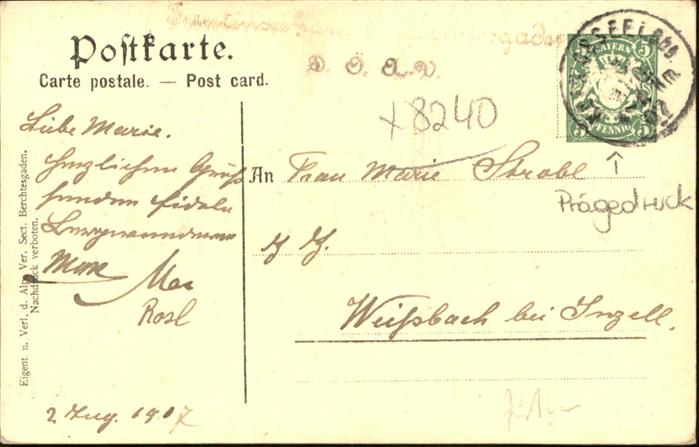 Postkarte.
Carte postale. — Post card.
Berchtesgaden
D. Ö. A. V.
BAYERN
5 5
PFENNIG
+8240
Prägedruck
Liebe Marie.
herzlichen Gruß
senden fidele
Max
Rosl
2 Aug. 1907
An Frau Marie Strobl
Weißbach bei Inzell.
Eigent. u. Verl. d. Alp. Ver. Sect. Berchtesgaden.
Nachdruck verboten.